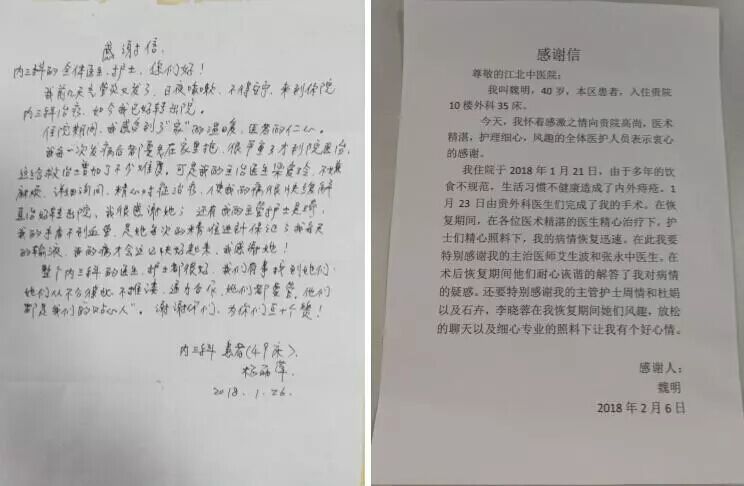 感谢信
内三科的全体医生、护士,您们好!
我前几天气管炎又发了,日夜咳嗽,不得安宁,来到你院
内三科治疗,如今我已好转出院。
住院期间,我感受到了"家"的温暖,医者的仁心。
我每一次发病后都要先在家里拖,很严重了才到院医治,
这给救治增加了不少难度,可是我的主治医生
麻烦,详细询问,精心对症治疗,使我的病很快缓解
直治好转出院,我很感谢她;还有我的主管护士
我的手看不到血管,是她每次的精准进针保证了我每天
的输液,我的病才会这么快好起来,我感谢她!
整个内三科的医生、护士都很好,我们有事找到她们,
她们从不分彼此,不推诿,通力合作,她们都爱管,他们
都是我们的"贴心人"。谢谢你们,为你们点个赞!
内三科 患者(49床)
2018.1.26
感谢信
尊敬的江北中医院:
我叫魏明,40 岁,本区患者,入住贵院
10 楼外科 35 床。
今天,我怀着感激之情向贵院高尚,医术
精湛,护理细心,风趣的全体医护人员表示衷心
的感谢。
我住院于 2018 年 1 月 21 日,由于多年的饮
食不规范,生活习惯不健康造成了内外痔疮。1
月 23 日由贵外科医生们完成了我的手术。在恢
复期间,在各位医术精湛的医生精心治疗下,护
士们精心照料下,我的病情恢复迅速。在此我要
特别感谢我的主治医师文生波和张永中医生。在
术后恢复期间他们耐心诙谐的解答了我对病情
的疑惑。还要特别感谢我的主管护士周情和杜娟
以及石卉,李晓蓉在我恢复期间她们风趣,放松
的聊天以及细心专业的照料下让我有个好心情。
感谢人:
魏明
2018 年 2 月 6 日